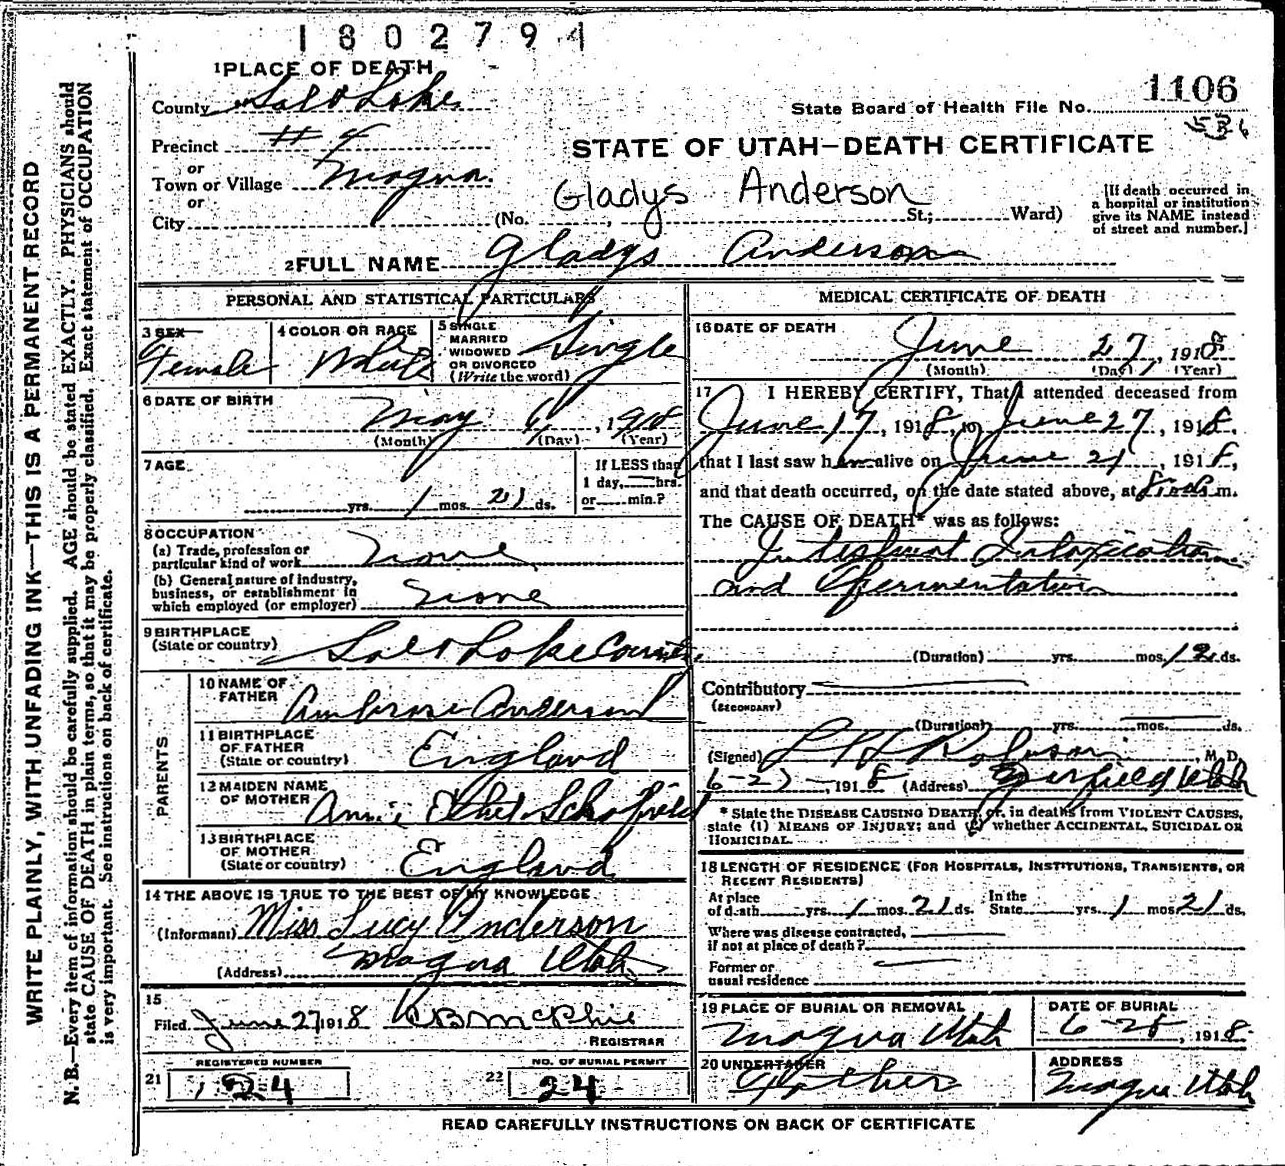 1802794
1 PLACE OF DEATH
County Salt Lake
State Board of Health File No. 1106
Precinct #4
STATE OF UTAH—DEATH CERTIFICATE
or
Town or Village Magna.
or
Gladys Anderson
City (No. St.; Ward)
[If death occurred in a hospital or institution give its NAME instead of street and number.]
2 FULL NAME Gladys Anderson
PERSONAL AND STATISTICAL PARTICULARS
3 SEX
Female
4 COLOR OR RACE
White
5 SINGLE MARRIED WIDOWED OR DIVORCED (Write the word)
Single
6 DATE OF BIRTH
May 6, 1918
(Month) (Day) (Year)
7 AGE
yrs. 1 mos. 21 ds.
If LESS than 1 day, hrs. or min.?
8 OCCUPATION
(a) Trade, profession or particular kind of work None
(b) General nature of industry, business, or establishment in which employed (or employer) None
9 BIRTHPLACE
(State or country) Salt Lake County
PARENTS
10 NAME OF FATHER Ambrose Anderson
11 BIRTHPLACE OF FATHER (State or country) England
12 MAIDEN NAME OF MOTHER Annie Ethel Schofield
13 BIRTHPLACE OF MOTHER (State or country) England
14 THE ABOVE IS TRUE TO THE BEST OF MY KNOWLEDGE
(Informant) Miss Lucy Anderson
(Address) Magna Utah
15
Filed June 27 1918 McPhie
REGISTRAR
REGISTERED NUMBER
21 124
NO. OF BURIAL PERMIT
22 24
MEDICAL CERTIFICATE OF DEATH
16 DATE OF DEATH
June 27, 1918
(Month) (Day) (Year)
17 I HEREBY CERTIFY, That I attended deceased from
June 17, 1918, to June 27, 1918.
that I last saw her alive on June 21, 1918,
and that death occurred, on the date stated above, at m.
The CAUSE OF DEATH* was as follows:
Intestinal Intoxication
and Fermentation
(Duration) yrs. mos. 12 ds.
Contributory
(SECONDARY)
(Duration) yrs. mos. ds.
(Signed) Robinson, M. D.
6-27-, 1918 (Address) Garfield Utah
* State the DISEASE CAUSING DEATH, or, in deaths from VIOLENT CAUSES, state (1) MEANS OF INJURY; and (2) whether ACCIDENTAL, SUICIDAL OR HOMICIDAL.
18 LENGTH OF RESIDENCE (FOR HOSPITALS, INSTITUTIONS, TRANSIENTS, OR RECENT RESIDENTS)
At place of death yrs. 1 mos. 21 ds. In the State yrs. 1 mos 21 ds.
Where was disease contracted, if not at place of death?
Former or usual residence
19 PLACE OF BURIAL OR REMOVAL
Magna Utah
DATE OF BURIAL
6-28, 1918.
20 UNDERTAKER
Father
ADDRESS
Magna Utah
READ CAREFULLY INSTRUCTIONS ON BACK OF CERTIFICATE
WRITE PLAINLY, WITH UNFADING INK—THIS IS A PERMANENT RECORD
N. B.—Every item of information should be carefully supplied. AGE should be stated EXACTLY. PHYSICIANS should
state CAUSE OF DEATH in plain terms, so that it may be properly classified. Exact statement of OCCUPATION
is very important. See instructions on back of certificate.